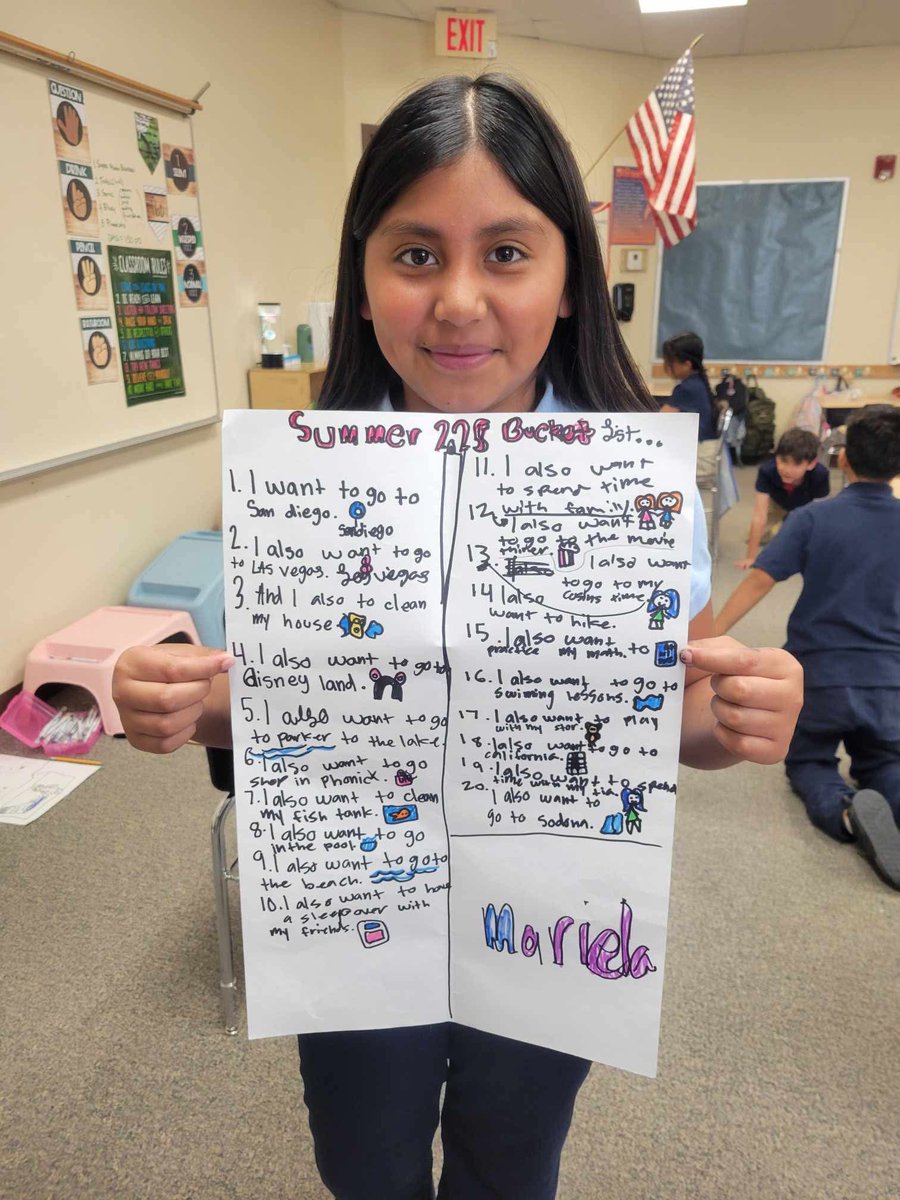 EXIT
QUESTION
DRINK
PENCIL
BATHROOM
CLASSROOM RULES
Summer 225 Bucket List...
1. I want to go to
San diego.
Sandiego
2. I also want to go
to LAS vegas. Las vegas
3. And I also to clean
my house
4. I also want to go to
disney land.
5. I also want to go
to parker to the lake.
6. I also want to go
shop in phonick.
7. I also want to clean
my fish tank.
8. I also want to go
in the pool.
9. I also want to go to
the beach.
10. I also want to have
a sleepover with
my friends.
11. I also want
to spend time
with family.
12. I also want
to go to the movie
13. I also want
to go to my
cosins time.
14. I also
want to hike.
15. I also want to
practice my math.
16. I also want to go to
swiming lessons.
17. I also want to play
with my
18. I also want to go to
california.
19. I also want to spend
time with my tia
20. I also want to
go to sodona.
Mariela